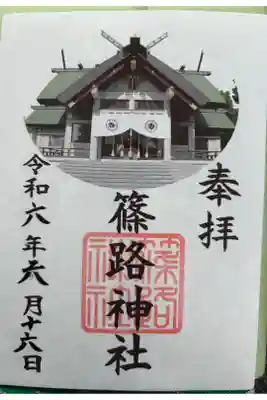 奉拝
篠路神社
令和六年六月十六日
篠路
神社